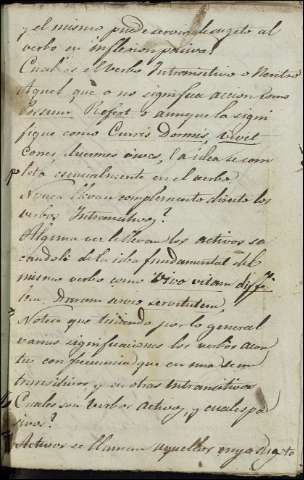 y el mismo puede servir de sugeto al
verbo en inflexion pasiva?
Cual es el verbo Intransitivo o Neutro
Aquel que o no significa accion como
Possum, Refert o aunque la signi
fique como Curris Dormis, vivet
corres, duermes vives, la idea se com
pleta esencialmente en el verbo
Nunca llevan complemento directo los
verbos Intransitivos?
Alguna vez llevan los activos sa
candole de la idea fundamental del
mismo verbo como Vivo vitam
servio servitutem,
Notese que teniendo por lo general
varias significaciones los verbos
con frecuencia que en una sean
transitivos y en otras Intransitivos
Cuales son verbos Activos, y cuales pa
sivos?
Activos se llaman aquellos cuyo sugeto